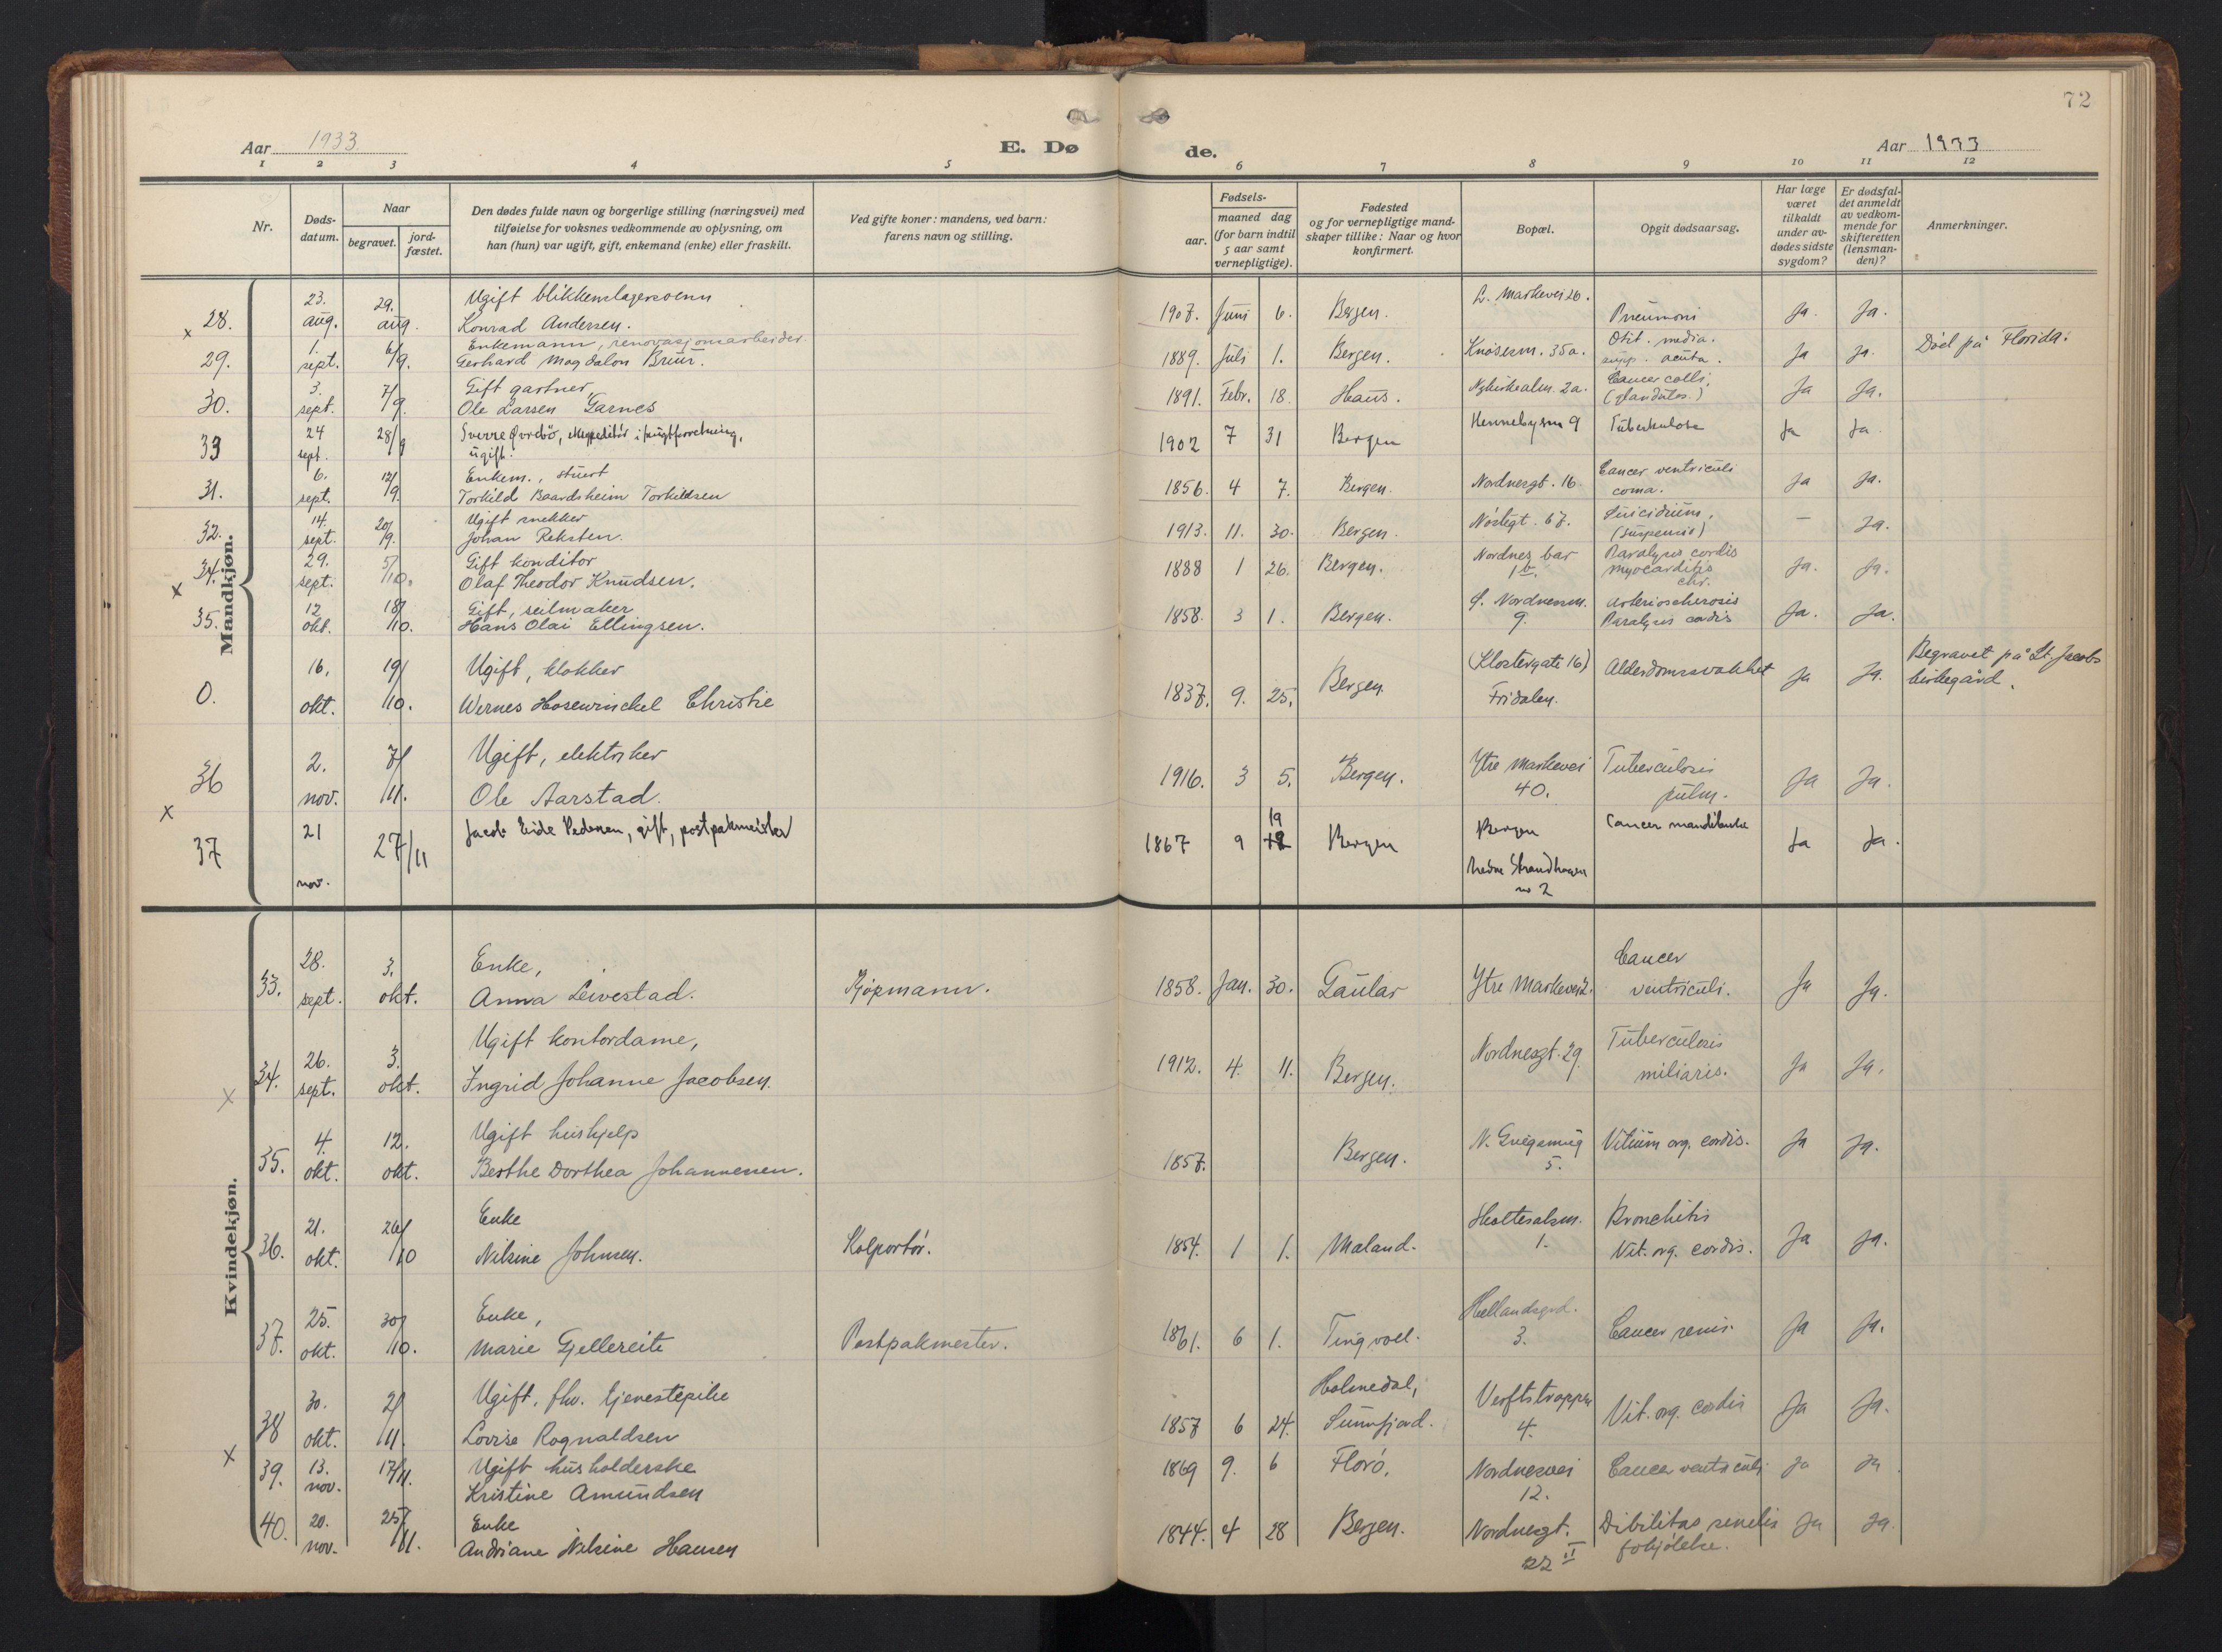 72
Aar 1933
E. Dø
de.
Aar 1933
1 2 3 4 5 6 7 8 9 10 11 12
Nr.
Døds-
datum.
Naar
begravet.
jord-
fæstet.
Den dødes fulde navn og borgerlige stilling (næringsvei) med
tilføielse for voksnes vedkommende av oplysning, om
han (hun) var ugift, gift, enkemand (enke) eller fraskilt.
Ved gifte koner: mandens, ved barn:
farens navn og stilling.
Fødsels-
aar.
maaned dag
(for barn indtil
5 aar samt
vernepligtige).
Fødested
og for vernepligtige mand-
skaper tillike: Naar og hvor
konfirmert.
Bopæl.
Opgit dødsaarsag.
Har læge
været
tilkaldt
under av-
dødes sidste
sygdom?
Er dødsfal-
det anmeldt
av vedkom-
mende for
skifteretten
(lensman-
den)?
Anmerkninger.
Mandkjøn.
x 28. 23. aug. 29. aug. Ugift blikkenslagersvenn
Konrad Andersen. 1907. Juni 6. Bergen. L. Markevei 26. Pneumoni Ja. Ja.
29. 1. sept. 6/9. Enkemann, renovasjonsarbeider.
Gerhard Magdalon Bruur. 1889. Juli 1. Bergen. Knøsesm. 35a. Otit. media.
supp. acuta. Ja Ja. Død på Florida.
30. 3. sept. 7/9 Gift gartner,
Ole Larsen Garnes 1891. Febr. 18. Haus. Nykirkealm. 2a. Cancer colli,
(glandulos.) Ja Ja.
33 24 sept. 28/9 Sverre Øvrebø, ekspeditør i frugtforretning,
ugift. 1902 7 31 Bergen Hennebysm 9 Tuberkulose Ja Ja.
31. 6. sept. 12/9. Enkem., stuert
Torkild Baardsheim Torkildsen 1856. 4 7. Bergen. Nordnesgt. 16 Cancer ventriculi
coma. Ja Ja.
32. 14. sept. 20/9. Ugift snekker
Johan Reksten. 1913. 11. 30. Bergen. Nøstegt. 67. Suicidium,
(suspensio) — Ja.
x 34. 29. sept. 5/10. Gift konditor
Olaf Theodor Knudsen. 1888 1 26. Bergen. Nordnes bar
1b. Paralysis cordis
myocarditis
chr. Ja. Ja.
35. 12 okt. 18/10. Gift, seilmaker
Hans Olai Ellingsen. 1858. 3 1. Bergen. S. Nordnesm.
9. Arteriosclerosis
Paralysis cordis Ja. Ja.
0. 16. okt. 19/10. Ugift, klokker
Werner Hosewinckel Christie 1837. 9. 25. Bergen. (Klostergate 16)
Fridalen. Alderdomssvakhet Ja Ja. Begravet på St. Jacobs
kirkegård.
36 2. nov. 7/11. Ugift, elektriker
Ole Aarstad. 1916. 3 5. Bergen. Ytre Markevei
40. Tuberculosis
pulm. Ja Ja.
x
37 21 nov. 27/11 Jacob Eide Pedersen, gift, postpakmeister 1867 9 19 Bergen Bergen
Nedre Strandhagen
no 2 Cancer mandibulae Ja Ja.
Kvindekjøn.
33. 28. sept. 3. okt. Enke,
Anna Leivestad. Kjøpmann. 1858. Jan. 30. Gaular Ytre Markevei 2. Cancer
ventriculi. Ja Ja.
x 34. 26. sept. 3. okt. Ugift kontordame,
Ingrid Johanne Jacobsen. 1912. 4. 11. Bergen. Nordnesgt. 29. Tuberculosis
miliaris. Ja Ja.
35. 4. okt. 12. okt. Ugift hushjelp
Berthe Dorthea Johannesen. 1857. Bergen. 5. Vitium org. cordis. Ja Ja.
36. 21. okt. 26/10 Enke
Nilsine Johnsen. Kolportør. 1854. 1 1. Maland. Holtesalm.
1. Bronchitis
Vit. org. cordis. Ja Ja.
37. 25. okt. 30/10. Enke,
Marie Gjellereite Postpakmester. 1861. 6 1. Tingvoll. Hellandsgrd.
3. Cancer renis. Ja Ja.
38 30. okt. 2/11. Ugift, fhv. tjenestepike
Lovise Rognaldsen 1857 6 24. Holmedal,
Sunnfjord. Verftstrappen
4. Vit. org. cordis Ja Ja.
x 39. 13. nov. 17/11. Ugift husholderske
Kristine Amundsen 1869 9. 6 Florø. Nordnesvei
12. Cancer ventriculi Ja Ja
40. 20. nov. 25/11. Enke
Andriane Nilsine Hansen 1844. 4 28 Bergen. Nordnesgt.
22 II Dibilitas senilis
forkjølelse. Ja Ja.